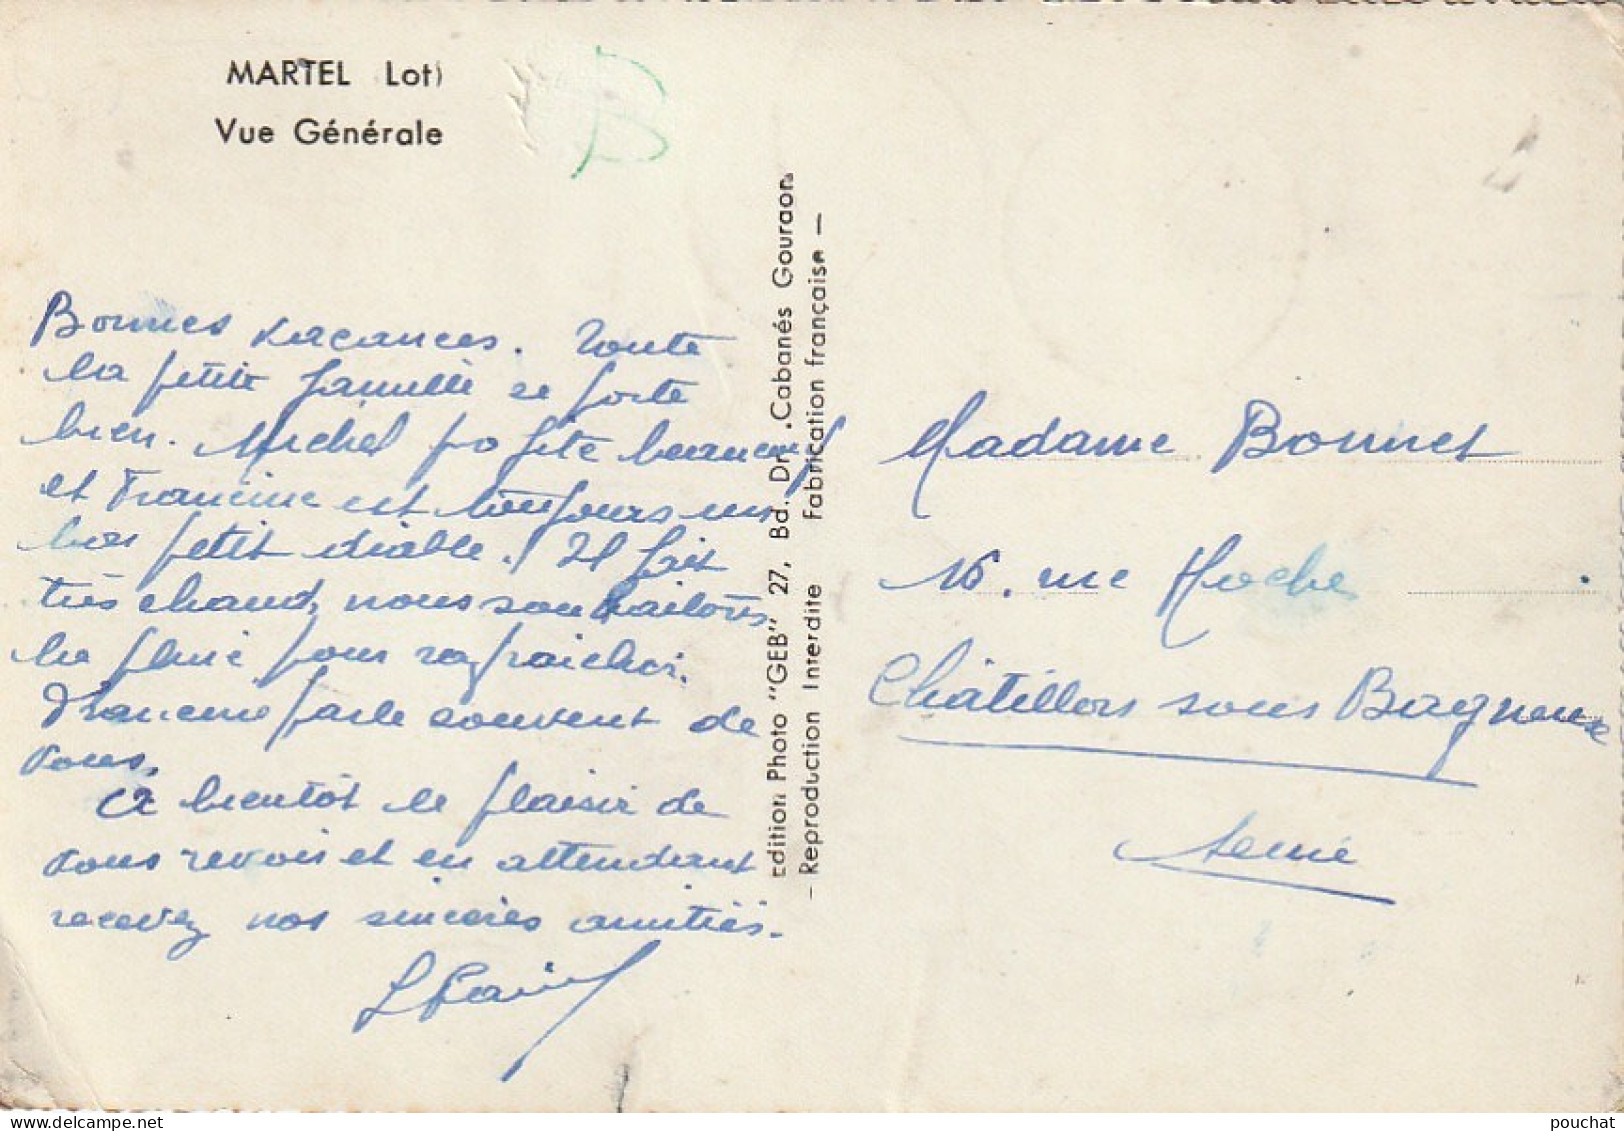 MARTEL Lot)
Vue Générale
B
Bonnes vacances. Toute
la petite famille se porte
bien. Michel pofite beaucoup
et Francine est toujours un
bon petit diable. Il fait
très chaud, nous souhaitons
la pluie pour rafraichir.
Francine parle souvent de
vous.
A bientôt le plaisir de
vous revoir et en attendant
recevez nos sincères amitiés.
Edition Photo "GEB" 27, Bd. Dr .Cabanés Gouraon
- Reproduction Interdite Fabrication française -
Madame Bonnet
16. rue Hoche
Châtillon sous Bagneux
Seine
pouchat